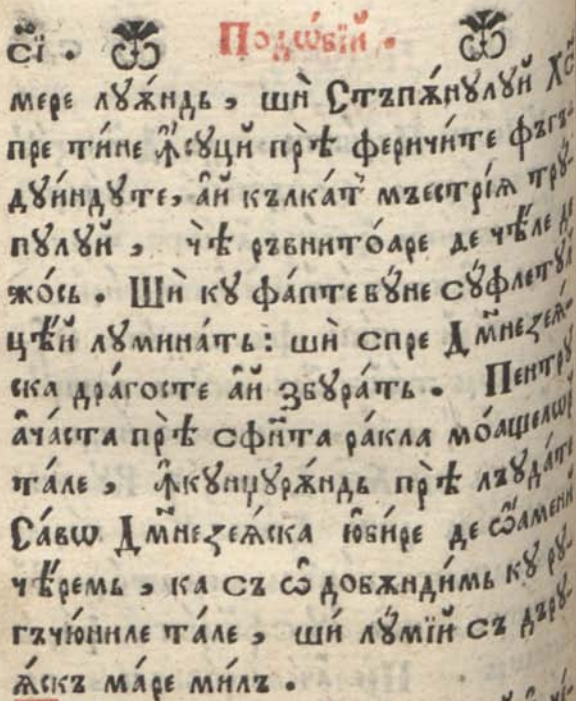 с҃і . Подѡ́бїй .
мере лꙋѫ́ндь , шѝ Стъпѫ́нꙋлꙋй Хс҃
пре ти́не ꙟ҆сꙋцй прѣ̀ феричи́те фъгъ-
дꙋи́ндꙋте, а҆́й кълка́т мъестрі́ѧ трꙋ́-
пꙋлꙋй , чѣ̀ ръвнито́аре де чѣ́ле де
жо́сь . Шѝ кꙋ фа́пте бꙋ́не сꙋ́флетꙋл
цѣ́й лꙋмина́ть : шѝ спре Дм҃незеѧ́-
ска дра́госте а҆́й збꙋра́ть . Пентрꙋ
а҆ча́ста прѣ̀ сфи҃та ра́кла мо́ащелѡр
та́ле , ꙟ҆кꙋнцꙋрѫ́ндь прѣ̀ лъꙋда́те
Са́вѡ Дм҃незеѧ́ска ю҆би́ре де ѡ҆́амений
чѣ́ремь , ка съ ѡ҆̀ добѫнди́мь кꙋ рꙋ-
гъчю́ниле та́ле , шѝ лꙋ́мїй съ дърꙋ-
ѧ́скъ ма́ре ми́лъ .